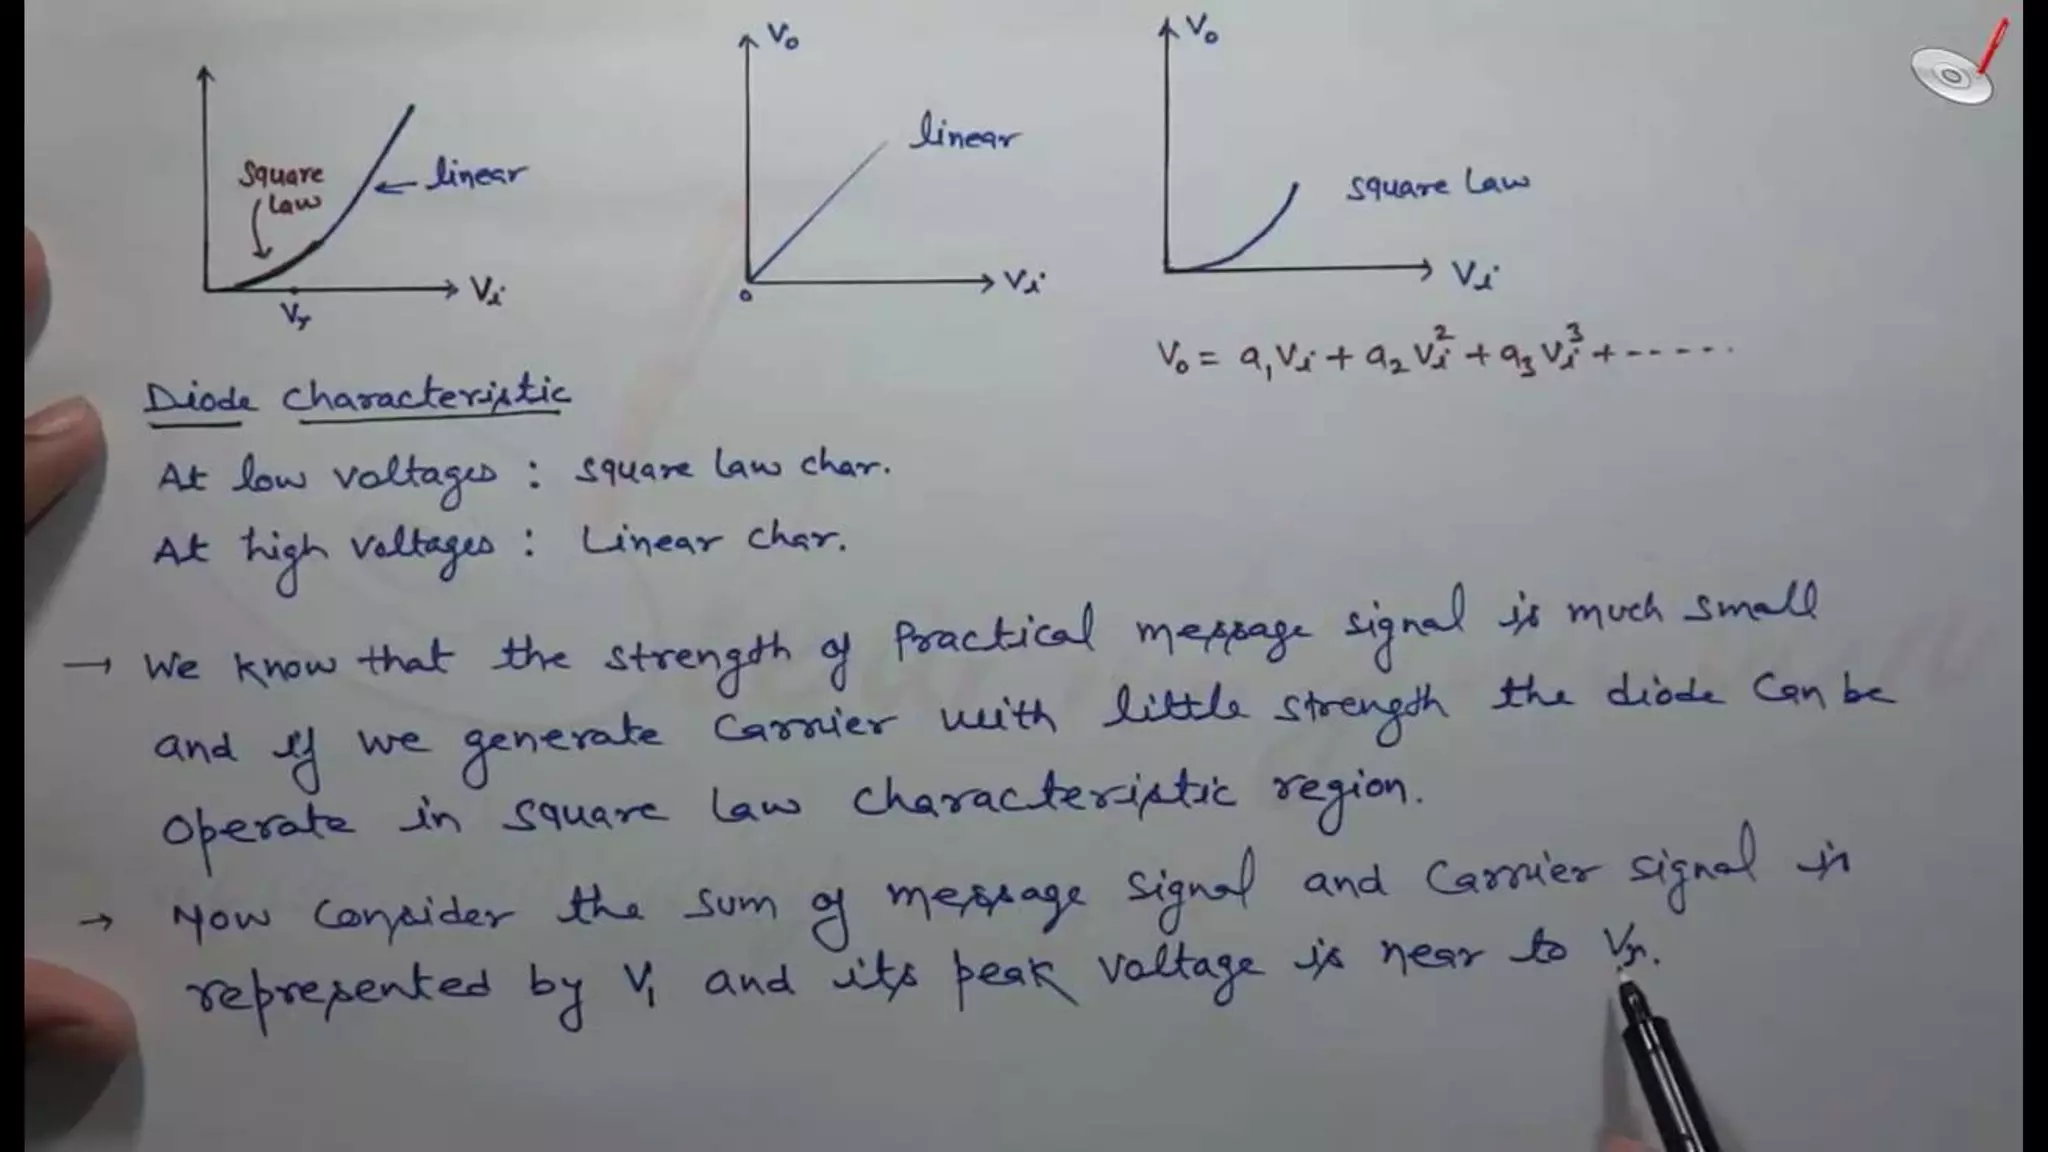 V₀
V₀
linear
square law
linear
square law
Vᵢ
Vᵢ
Vᵢ
Vᵧ
0
V₀ = a₁Vᵢ + a₂Vᵢ² + a₃Vᵢ³ + -----
Diode characteristic
At low voltages : square law char.
At high voltages : Linear char.
→ We know that the strength of Practical message signal is much small
and if we generate Carrier with little strength the diode Can be
operate in square law characteristic region.
→ Now consider the sum of message signal and Carrier signal is
represented by V₁ and its peak voltage is near to Vᵧ.